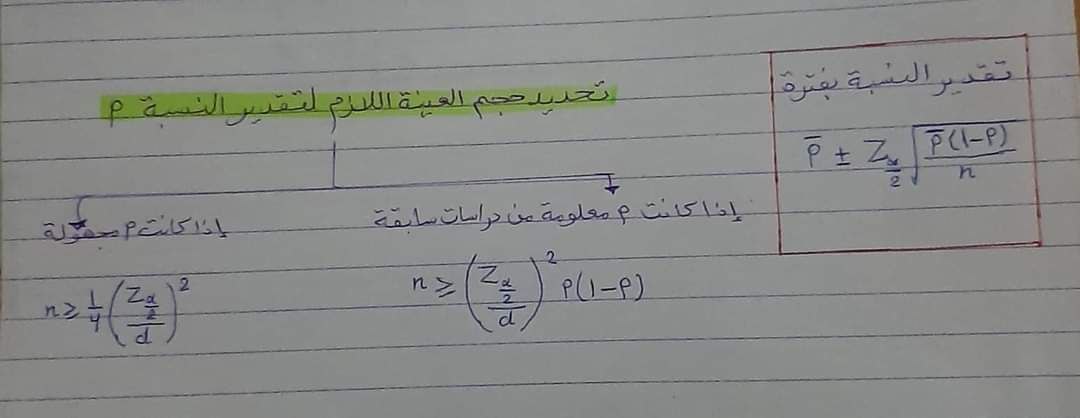 تقدير النسبة بفترة
p̄ ± Z_{α/2} √(p̄(1-p)/n)
تحديد حجم العينة اللازم لتقدير النسبة p
إذا كانت p معلومة من دراسات سابقة
n ≥ (Z_{α/2}/d)² p(1-p)
إذا كانت p مجهولة
n ≥ 1/4 (Z_{α/2}/d)²